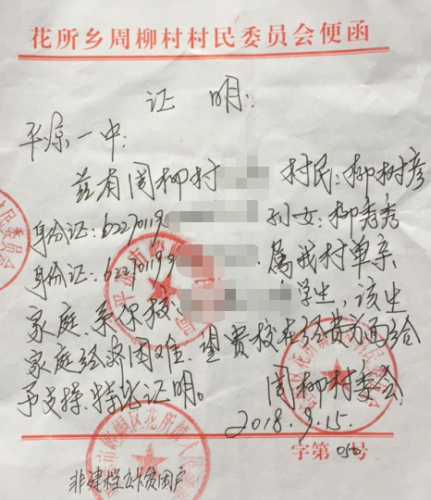 花所乡周柳村村民委员会便函
证 明:
平凉一中:
兹有周柳村 村民:柳树彦
身份证:62270119 孙女:柳秀秀
身份证:62270119 属我村单亲
家庭.系你校 学生,该生
家庭经济困难.望贵校在经费方面给
予支持.特此证明。
周柳村委会
2018.9.15.
字第050号
非建档立卡贫困户